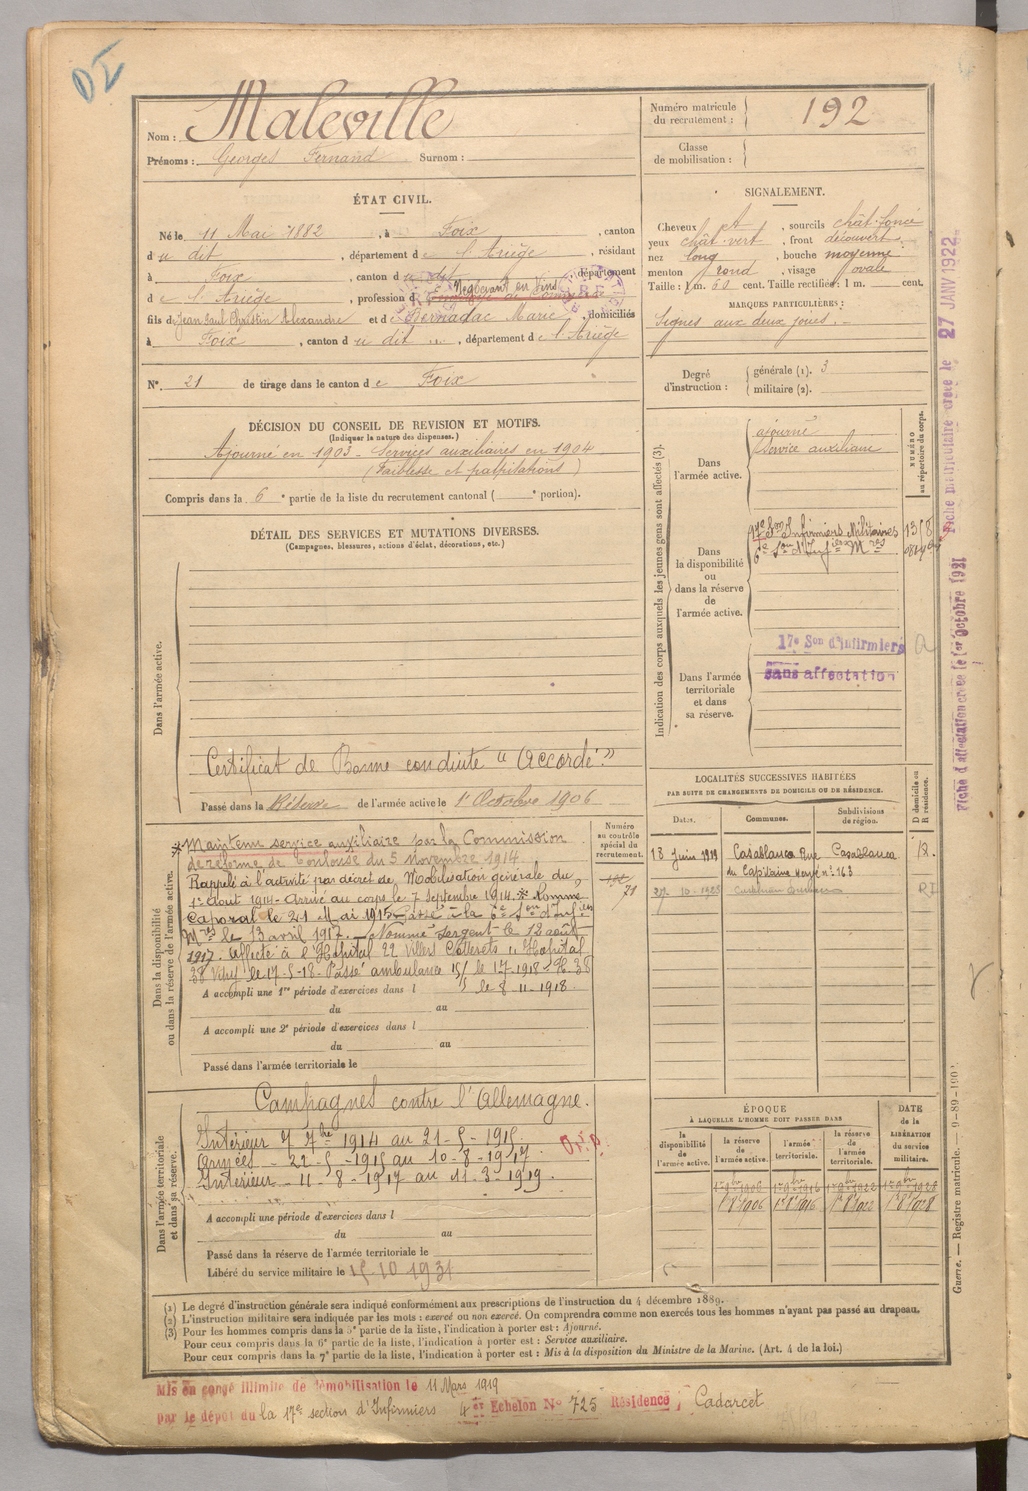 Nom : Maleville
Prénoms : Georges Fernand Surnom :
Numéro matricule du recrutement : 192
Classe de mobilisation :
ÉTAT CIVIL.
Né le 11 Mai 1882, à Foix, canton
du dit, département de l'Ariège, résidant
à Foix, canton du dit, département
de l'Ariège, profession d Négociant en Vins
fils de Jean Paul Christin Alexandre et de Bernadac Marie, domiciliés
à Foix, canton du dit, département de l'Ariège
N° 21 de tirage dans le canton de Foix
SIGNALEMENT.
Cheveux, sourcils chât. foncé
yeux chât. vert, front découvert
nez long, bouche moyenne
menton rond, visage ovale
Taille : 1 m. 60 cent. Taille rectifiée : 1 m. cent.
MARQUES PARTICULIÈRES :
Signes aux deux joues.
Degré d'instruction : générale (1). 3
militaire (2).
DÉCISION DU CONSEIL DE REVISION ET MOTIFS.
(Indiquer la nature des dispenses.)
Ajourné en 1903 - Services auxiliaires en 1904
(Faiblesse et palpitations)
Compris dans la 6e partie de la liste du recrutement cantonal ( e portion).
DÉTAIL DES SERVICES ET MUTATIONS DIVERSES.
(Campagnes, blessures, actions d'éclat, décorations, etc.)
Dans l'armée active.
Certificat de Bonne conduite "Accordé."
Passé dans la Réserve de l'armée active le 1er Octobre 1906
Indication des corps auxquels les jeunes gens sont affectés (3).
NUMÉRO au répertoire du corps.
Dans l'armée active.
ajourné
Service auxiliaire
Dans la disponibilité ou dans la réserve de l'armée active.
17e Son Infirmiers Militaires
6e Son d'Infiers Mres
Dans l'armée territoriale et dans sa réserve.
17e Son d'infirmiers
sans affectation
Fiche matriculaire créée le 27 JANV 1922
Fiche d'affectation créée le 1er Octobre 1921
Dans la disponibilité ou dans la réserve de l'armée active.
Maintenu service auxiliaire par la Commission
de réforme de Toulouse du 5 novembre 1914.
Rappelé à l'activité par décret de Mobilisation générale du
1er Août 1914. Arrivé au corps le 7 Septembre 1914. * Nommé
Caporal le 21 Mai 1915. Passé à la 6e Son d'Infiers
Mres le 13 avril 1917. Nommé Sergent le 12 août
1917. Affecté à l'Hôpital 22 Villers Cotterets Hopital
38 Vitry le 17-5-18. Passé ambulance
le 8-11-1918.
Numéro au contrôle spécial du recrutement.
71
A accompli une 1re période d'exercices dans l
du au
A accompli une 2e période d'exercices dans l
du au
Passé dans l'armée territoriale le
LOCALITÉS SUCCESSIVES HABITÉES
PAR SUITE DE CHANGEMENTS DE DOMICILE OU DE RÉSIDENCE.
Dates. Communes. Subdivisions de région. D domicile ou R résidence.
18 Juin 1919 Casablanca Rue Casablanca R.
du Capitaine Hervé n° 163
Dans l'armée territoriale et dans sa réserve.
Campagnes contre l'Allemagne.
Intérieur 7 7bre 1914 au 21-5-1915.
Armées - 22-5-1915 au 10-8-1917
Intérieur - 11-8-1917 au 11-3-1919.
A accompli une période d'exercices dans l
du au
Passé dans la réserve de l'armée territoriale le
Libéré du service militaire le 15-10 1931
ÉPOQUE
À LAQUELLE L'HOMME DOIT PASSER DANS
DATE de la LIBÉRATION du service militaire.
la disponibilité de l'armée active. la réserve de l'armée active. l'armée territoriale. la réserve de l'armée territoriale.
Guerre. — Registre matricule.
(1) Le degré d'instruction générale sera indiqué conformément aux prescriptions de l'instruction du 4 décembre 1889.
(2) L'instruction militaire sera indiquée par les mots : exercé ou non exercé. On comprendra comme non exercés tous les hommes n'ayant pas passé au drapeau.
(3) Pour les hommes compris dans la 5e partie de la liste, l'indication à porter est : Ajourné.
Pour ceux compris dans la 6e partie de la liste, l'indication à porter est : Service auxiliaire.
Pour ceux compris dans la 7e partie de la liste, l'indication à porter est : Mis à la disposition du Ministre de la Marine. (Art. 4 de la loi.)
Mis en congé illimité de démobilisation le 11 Mars 1919
par le dépôt du la 17e section d'Infirmiers 4er Echelon N° 725 Résidence, Cadarcet